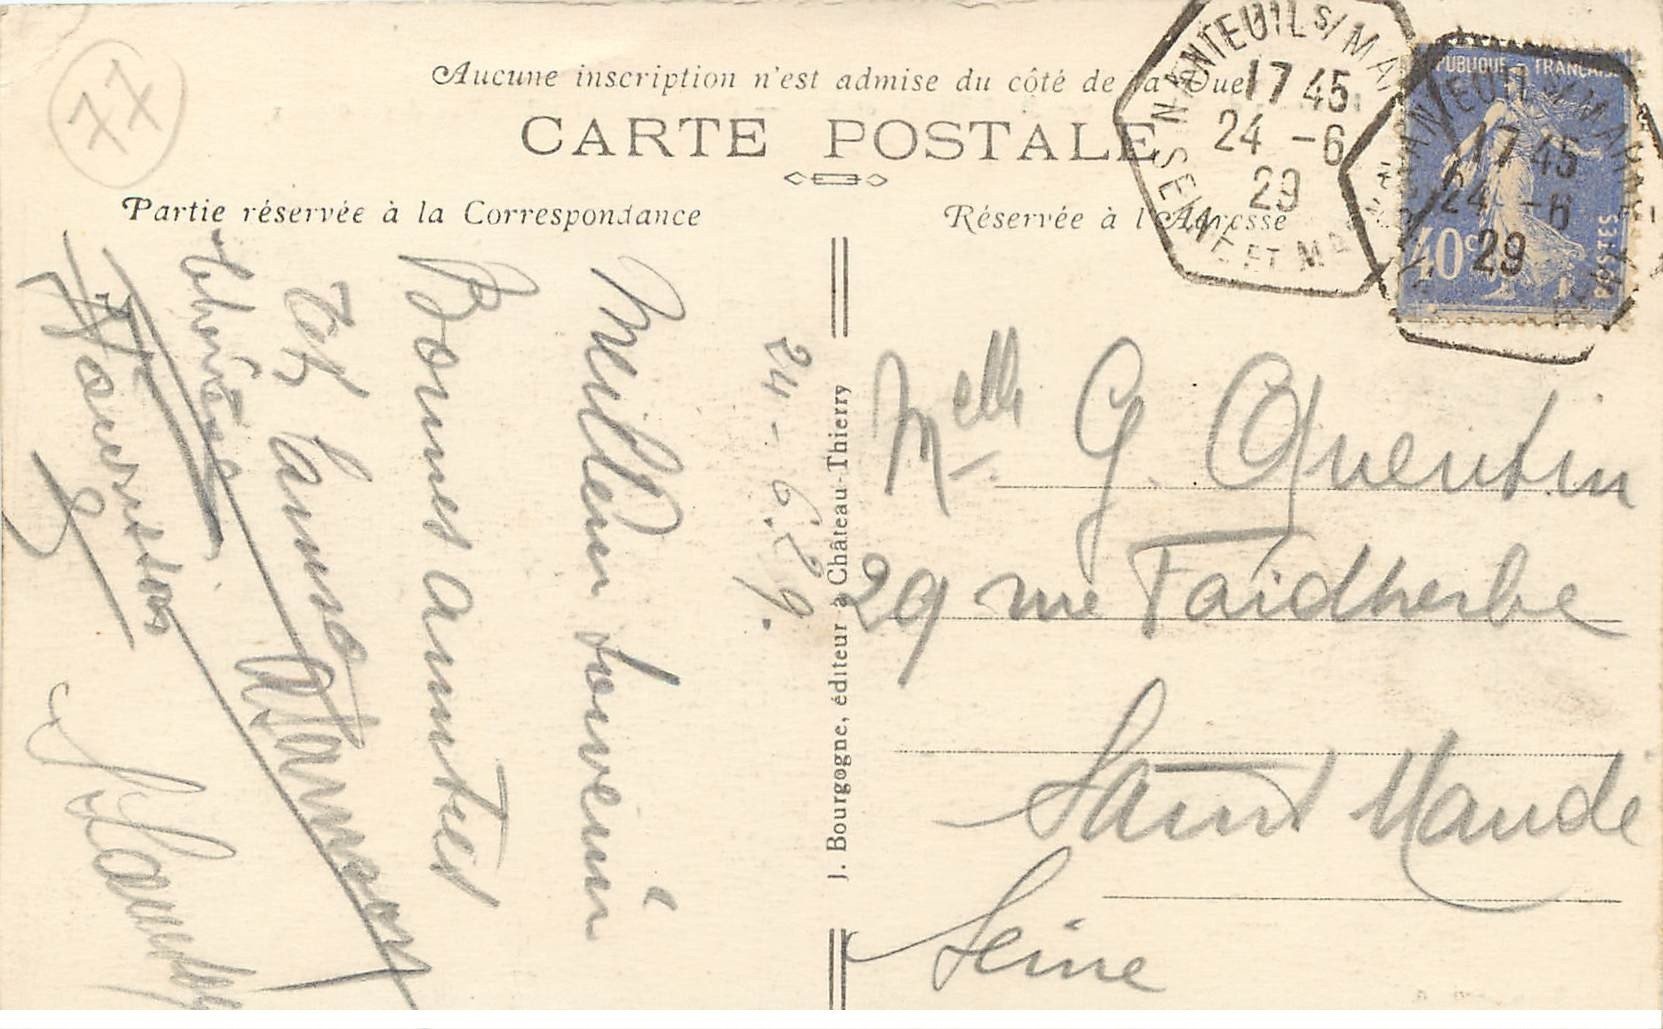 77
Aucune inscription n'est admise du côté de la Vue
CARTE POSTALE
Partie réservée à la Correspondance
Réservée à l'Adresse
NANTEUIL S/ MAR
17 45
24 -6
29
SEINE ET MA
RÉPUBLIQUE FRANÇAISE
40c
POSTES
NANTEUIL S/ MARNE
17 45
24 -6
29
J. Bourgogne, éditeur à Château-Thierry
24-6.29.
Meilleur souvenir
Bonnes amitiés
Melle G. Quentin
29 rue Faidherbe
Saint Mandé
Seine